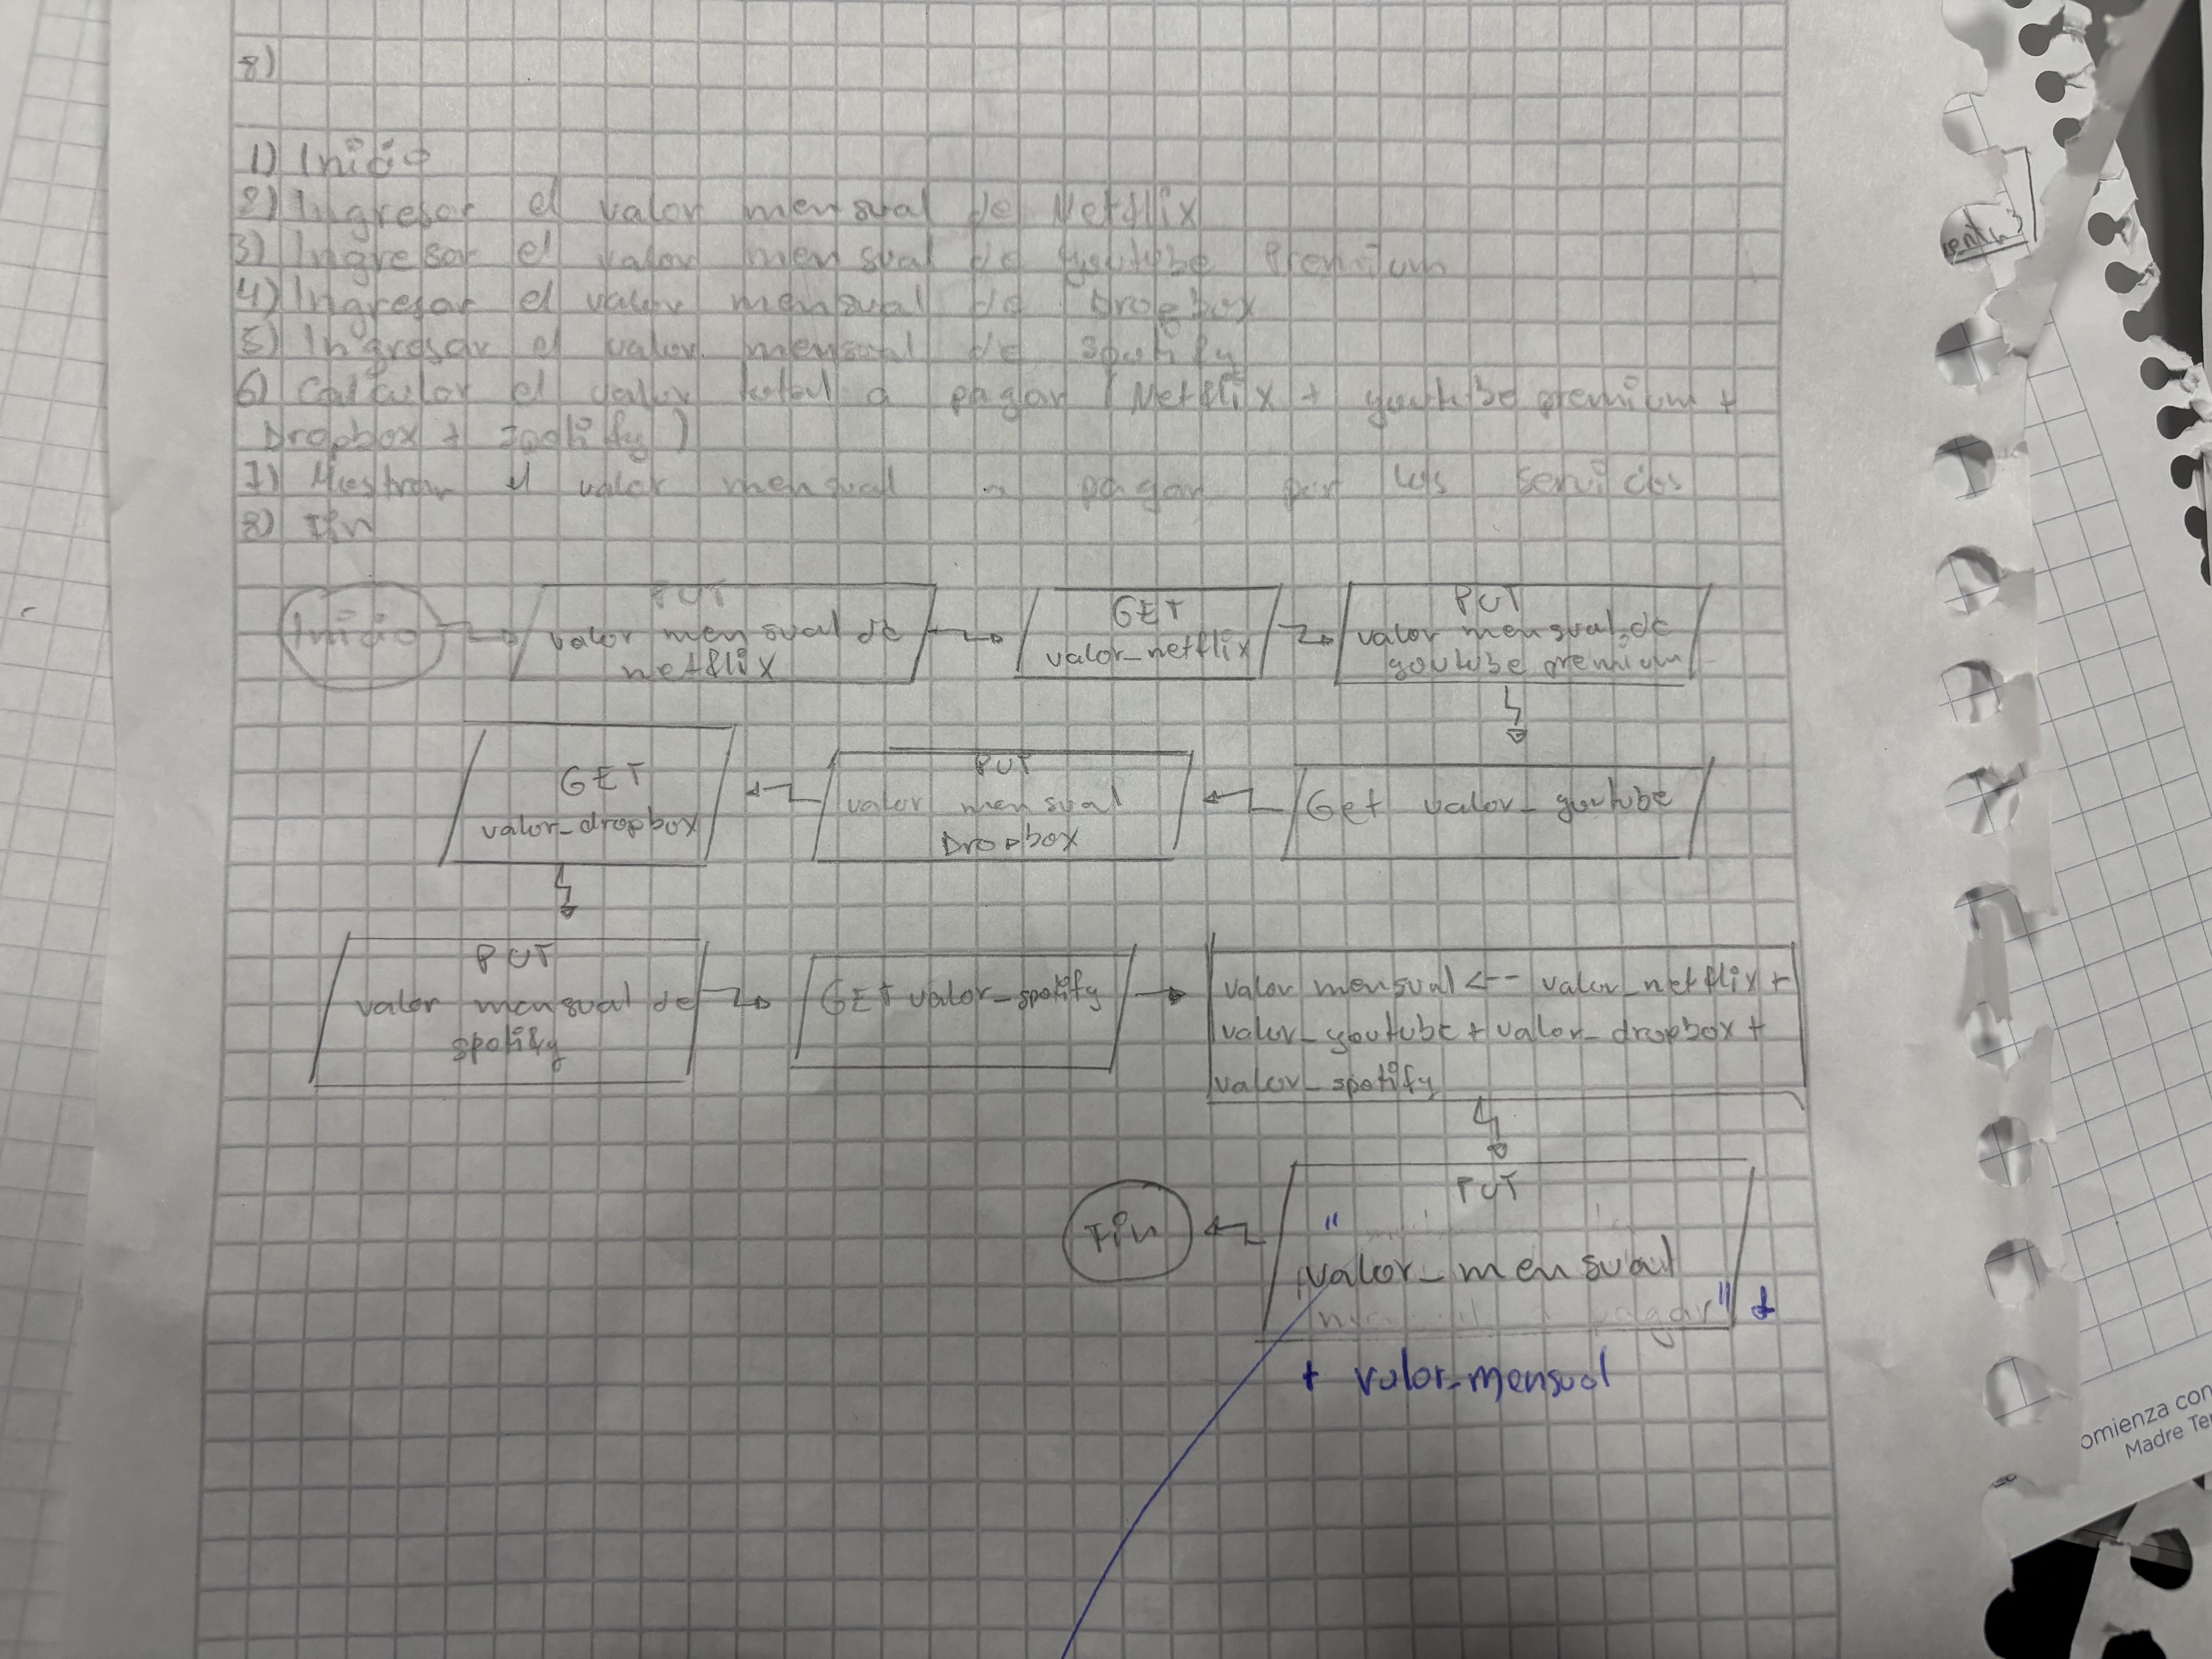 8)
1) Inicio
2) Ingresar el valor mensual de Netflix
3) Ingresar el valor mensual de youtube Premium
4) Ingresar el valor mensual de Dropbox
5) Ingresar el valor mensual de Spotify
6) Calcular el valor total a pagar (Netflix + youtube premium +
Dropbox + Spotify)
7) Mostrar el valor mensual a pagar por los servicios
8) Fin
Inicio
PUT
valor mensual de
netflix
GET
valor_netflix
PUT
valor mensual de
youtube premium
Get valor_youtube
PUT
valor mensual
Dropbox
GET
valor_dropbox
PUT
valor mensual de
spotify
GET valor_spotify
valor mensual <-- valor_netflix +
valor_youtube + valor_dropbox +
valor_spotify
PUT
"
valor_mensual
pagar" +
+ valor_mensual
Fin
omienza con
Madre Te